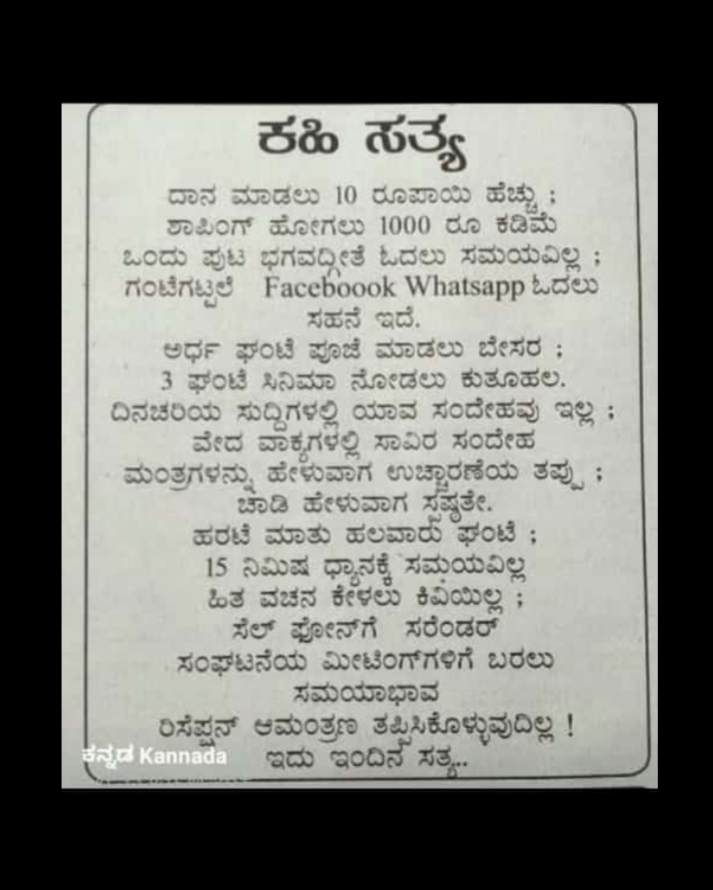 ಕಹಿ ಸತ್ಯ
ದಾನ ಮಾಡಲು 10 ರೂಪಾಯಿ ಹೆಚ್ಚು ;
ಶಾಪಿಂಗ್ ಹೋಗಲು 1000 ರೂ ಕಡಿಮೆ
ಒಂದು ಪುಟ ಭಗವದ್ಗೀತೆ ಓದಲು ಸಮಯವಿಲ್ಲ ;
ಗಂಟೆಗಟ್ಟಲೆ Faceboook Whatsapp ಓದಲು
ಸಹನೆ ಇದೆ.
ಅರ್ಧ ಘಂಟೆ ಪೂಜೆ ಮಾಡಲು ಬೇಸರ ;
3 ಘಂಟೆ ಸಿನಿಮಾ ನೋಡಲು ಕುತೂಹಲ.
ದಿನಚರಿಯ ಸುದ್ದಿಗಳಲ್ಲಿ ಯಾವ ಸಂದೇಹವು ಇಲ್ಲ ;
ವೇದ ವಾಕ್ಯಗಳಲ್ಲಿ ಸಾವಿರ ಸಂದೇಹ
ಮಂತ್ರಗಳನ್ನು ಹೇಳುವಾಗ ಉಚ್ಚಾರಣೆಯ ತಪ್ಪು ;
ಚಾಡಿ ಹೇಳುವಾಗ ಸ್ಪಷ್ಠತೇ.
ಹರಟೆ ಮಾತು ಹಲವಾರು ಘಂಟೆ ;
15 ನಿಮಿಷ ಧ್ಯಾನಕ್ಕೆ ಸಮಯವಿಲ್ಲ
ಹಿತ ವಚನ ಕೇಳಲು ಕಿವಿಯಿಲ್ಲ ;
ಸೆಲ್ ಫೋನ್‌ಗೆ ಸರೆಂಡರ್
ಸಂಘಟನೆಯ ಮೀಟಿಂಗ್‌ಗಳಿಗೆ ಬರಲು
ಸಮಯಾಭಾವ
ರಿಸೆಪ್ಷನ್ ಆಮಂತ್ರಣ ತಪ್ಪಿಸಿಕೊಳ್ಳುವುದಿಲ್ಲ !
ಇದು ಇಂದಿನ ಸತ್ಯ..
ಕನ್ನಡ Kannada